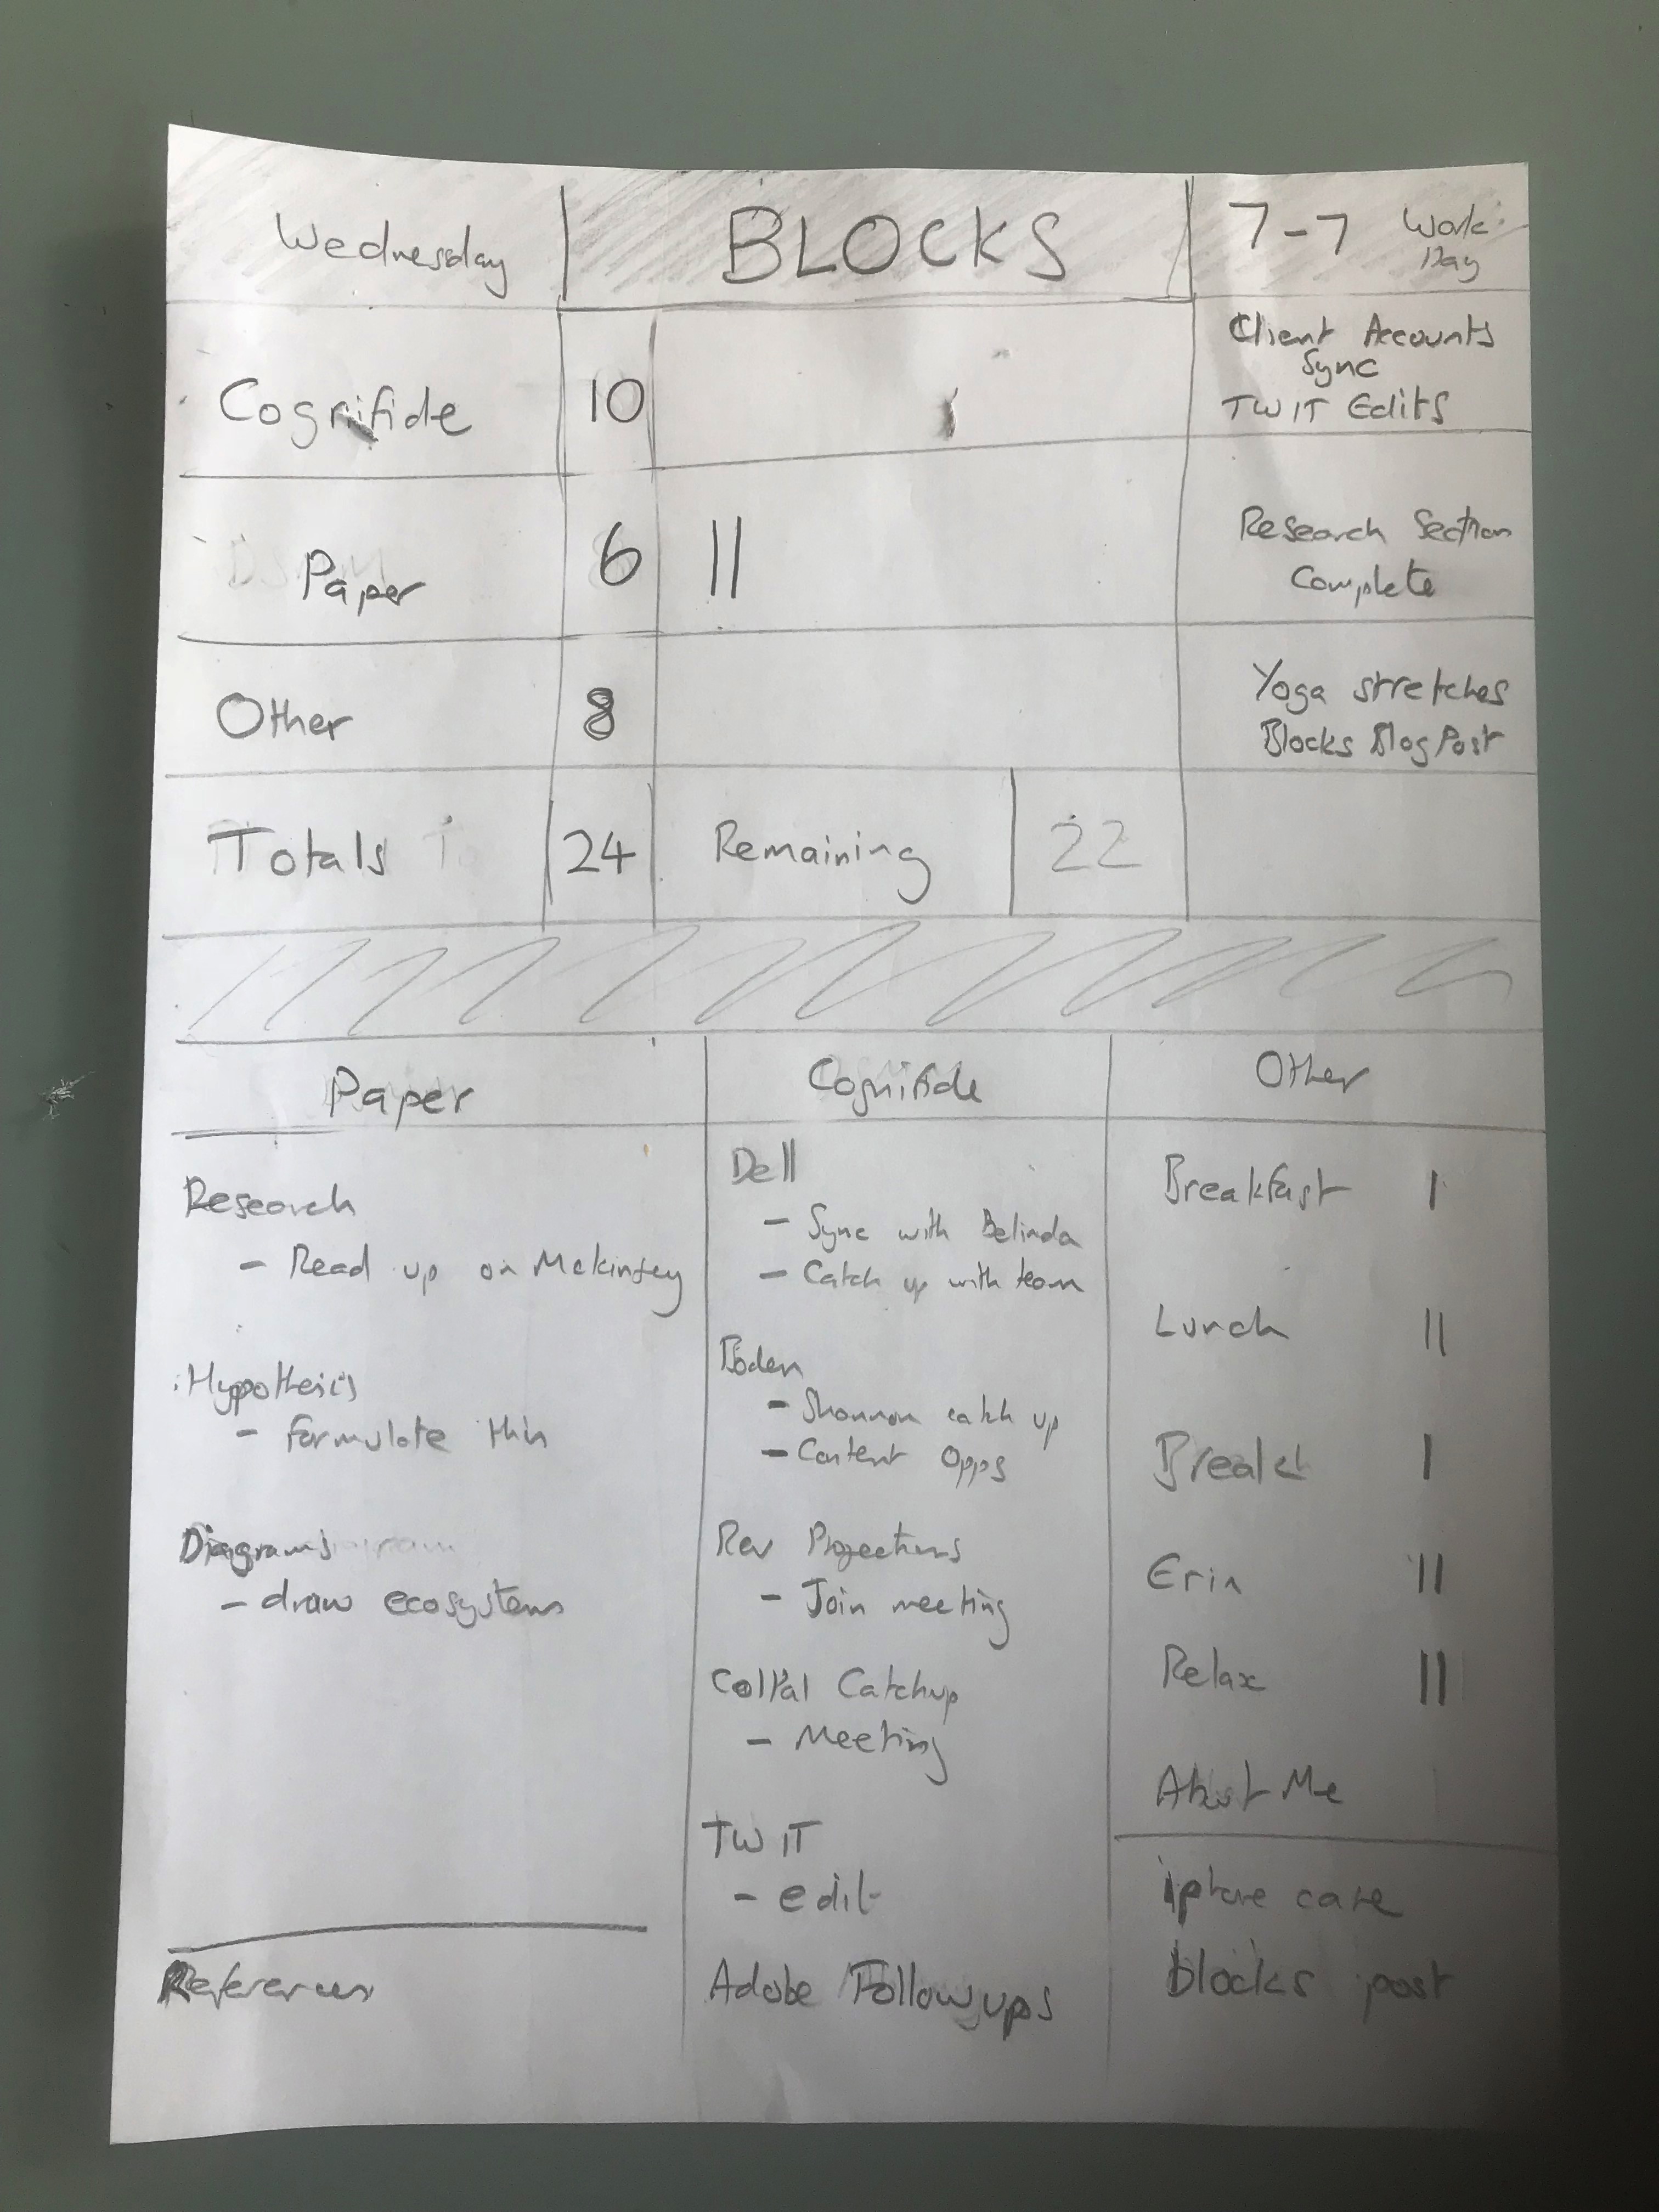 Wednesday
BLOCKS
7-7 Work Day
Cognifide
10
Client Accounts
Sync
TWIT Edits
Paper
6
||
Research Section
Complete
Other
8
Yoga stretches
Blocks Blog Post
Totals
24
Remaining
22
Paper
Research
- Read up on Mckinsey
Hypothesis
- formulate this
Diagrams
- draw ecosystems
References
Cognifide
Dell
- Sync with Belinda
- Catch up with team
Boden
- Shannon catch up
- Content Opps
Rev Projections
- Join meeting
Catchup
- Meeting
TWIT
- edit
Adobe Followups
Other
Breakfast |
Lunch ||
Break |
Erin ||
Relax ||
About Me
iphone case
blocks post